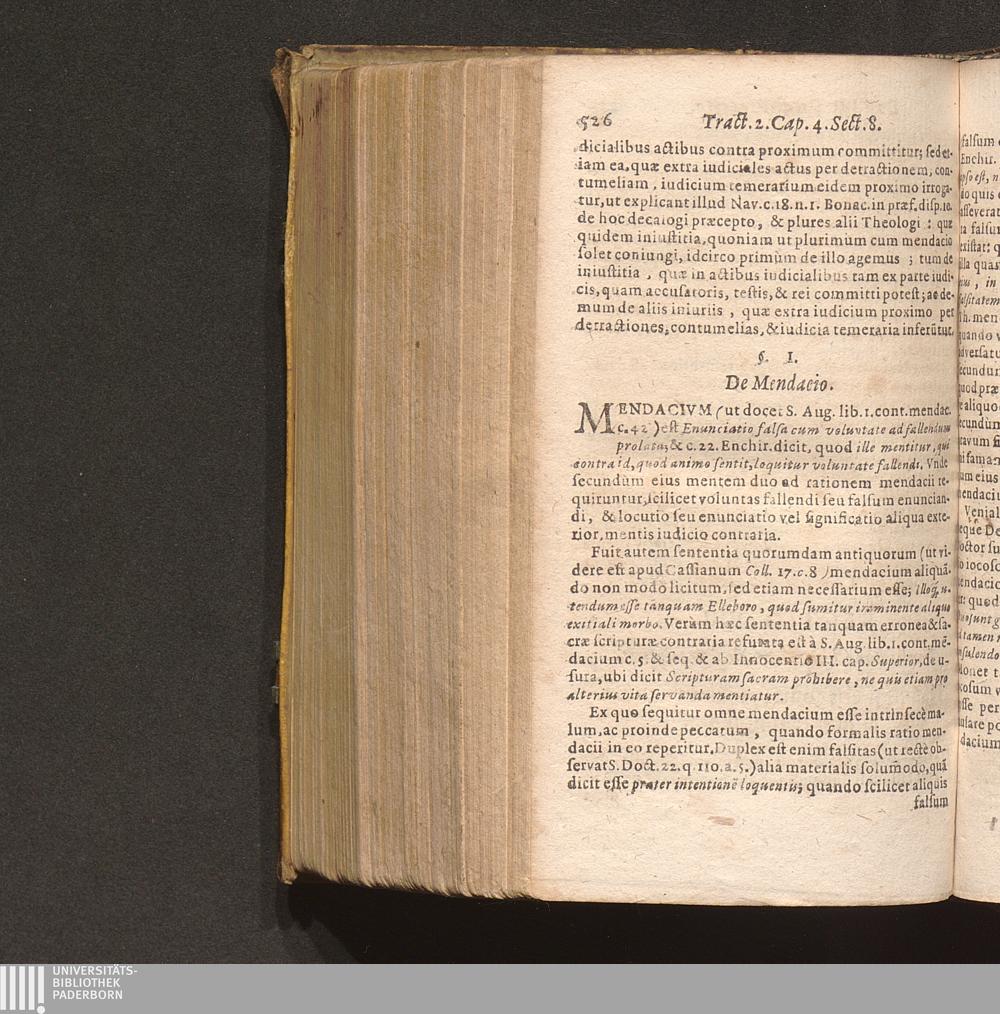 526 Tract. 2. Cap. 4. Sect. 8.
dicialibus actibus contra proximum committitur; sed et-
iam ea, quæ extra iudiciales actus per detractionem, con-
tumeliam, iudicium temerarium eidem proximo irroga-
tur, ut explicant illud Nav. c. 18. n. 1. Bonac. in præf. disp. 10.
de hoc decalogi præcepto, & plures alii Theologi : quæ
quidem iniustitia, quoniam ut plurimum cum mendacio
solet coniungi, idcirco primùm de illo agemus ; tum de
iniustitia , quæ in actibus iudicialibus tam ex parte iudi-
cis, quam accusatoris, testis, & rei committi potest; ac de-
mum de aliis iniuriis , quæ extra iudicium proximo per
detractiones, contumelias, & iudicia temeraria inferũtur.
§. I.
De Mendacio.
MENDACIVM (ut docet S. Aug. lib. 1. cont. mendac.
c. 42 ) est Enunciatio falsa cum voluntate ad fallendum
prolata; & c. 22. Enchir. dicit, quod ille mentitur, qui
contra id, quod animo sentit, loquitur voluntate fallendi. Vnde
secundùm eius mentem duo ad rationem mendacii re-
quiruntur, scilicet voluntas fallendi seu falsum enuncian-
di, & locutio seu enunciatio vel significatio aliqua exte-
rior, mentis iudicio contraria.
Fuit autem sententia quorumdam antiquorum (ut vi-
dere est apud Cassianum Coll. 17. c. 8 ) mendacium aliquã-
do non modò licitum, sed etiam necessarium esse; illoq́; u-
tendum esse tanquam Elleboro, quod sumitur imminente aliquo
exitiali morbo. Verùm hæc sententia tanquam erronea & sa-
cræ scripturæ contraria refutata est à S. Aug. lib. 1. cont. mē-
dacium c. 5. & seq. & ab Innocentio III. cap. Superior, de u-
sura, ubi dicit Scripturam sacram prohibere, ne quis etiam pro
alterius vita servanda mentiatur.
Ex quo sequitur omne mendacium esse intrinsecè ma-
lum, ac proinde peccatum , quando formalis ratio men-
dacii in eo reperitur. Duplex est enim falsitas (ut rectè ob-
servat S. Doct. 22. q. 110. a. 5.) alia materialis solùmodo, quã
dicit esse præter intentionē loquentis; quando scilicet aliquis
falsum
UNIVERSITÄTS-
BIBLIOTHEK
PADERBORN